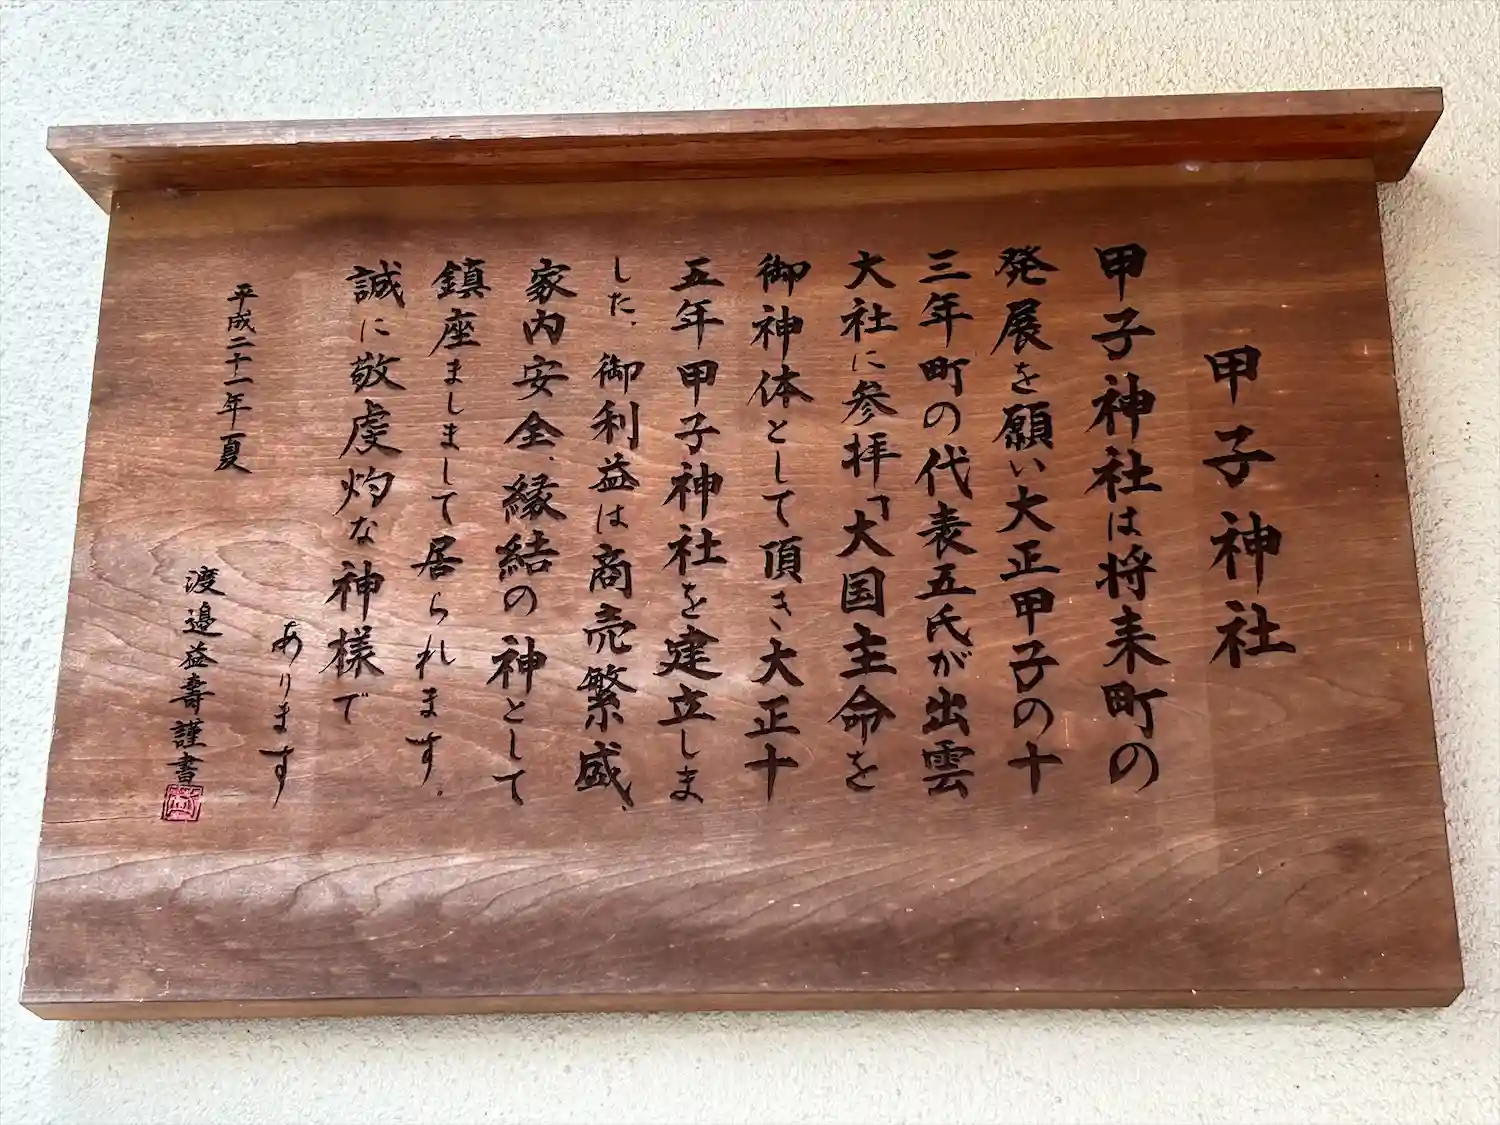 甲子神社
甲子神社は将来町の
発展を願い大正甲子の十
三年町の代表五氏が出雲
大社に参拝「大国主命を
御神体として頂き大正十
五年甲子神社を建立しま
した、御利益は商売繁盛、
家内安全、縁結の神として
鎮座ましまして居られます。
誠に敬虔灼な神様で
あります
平成二十一年夏
渡邉益壽謹書